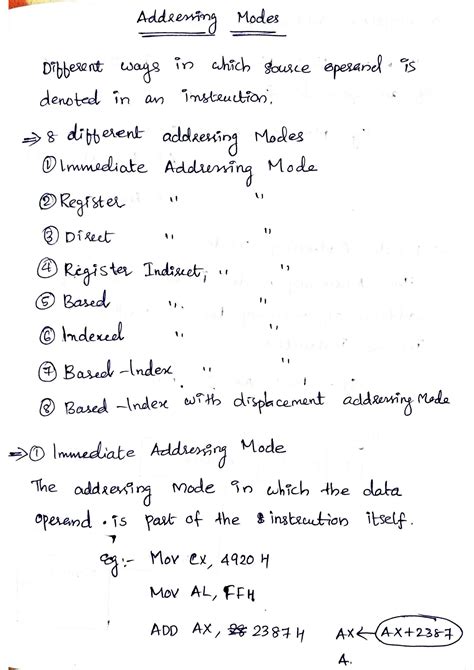 Addressing Modes
Different ways in which source operand is
denoted in an instruction.
⇒ 8 different addressing Modes
① Immediate Addressing Mode
② Register " "
③ Direct " "
④ Register Indirect, " "
⑤ Based " "
⑥ Indexed " "
⑦ Based-Index " "
⑧ Based-Index with displacement addressing Mode
⇒ ① Immediate Addressing Mode
The addressing mode in which the data
operand is part of the instruction itself.
eg:- Mov CX, 4920 H
Mov AL, FFH
ADD AX, 2387 H AX ← AX+2387
A.